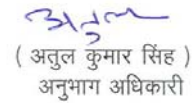 अतुल
( अतुल कुमार सिंह )
अनुभाग अधिकारी